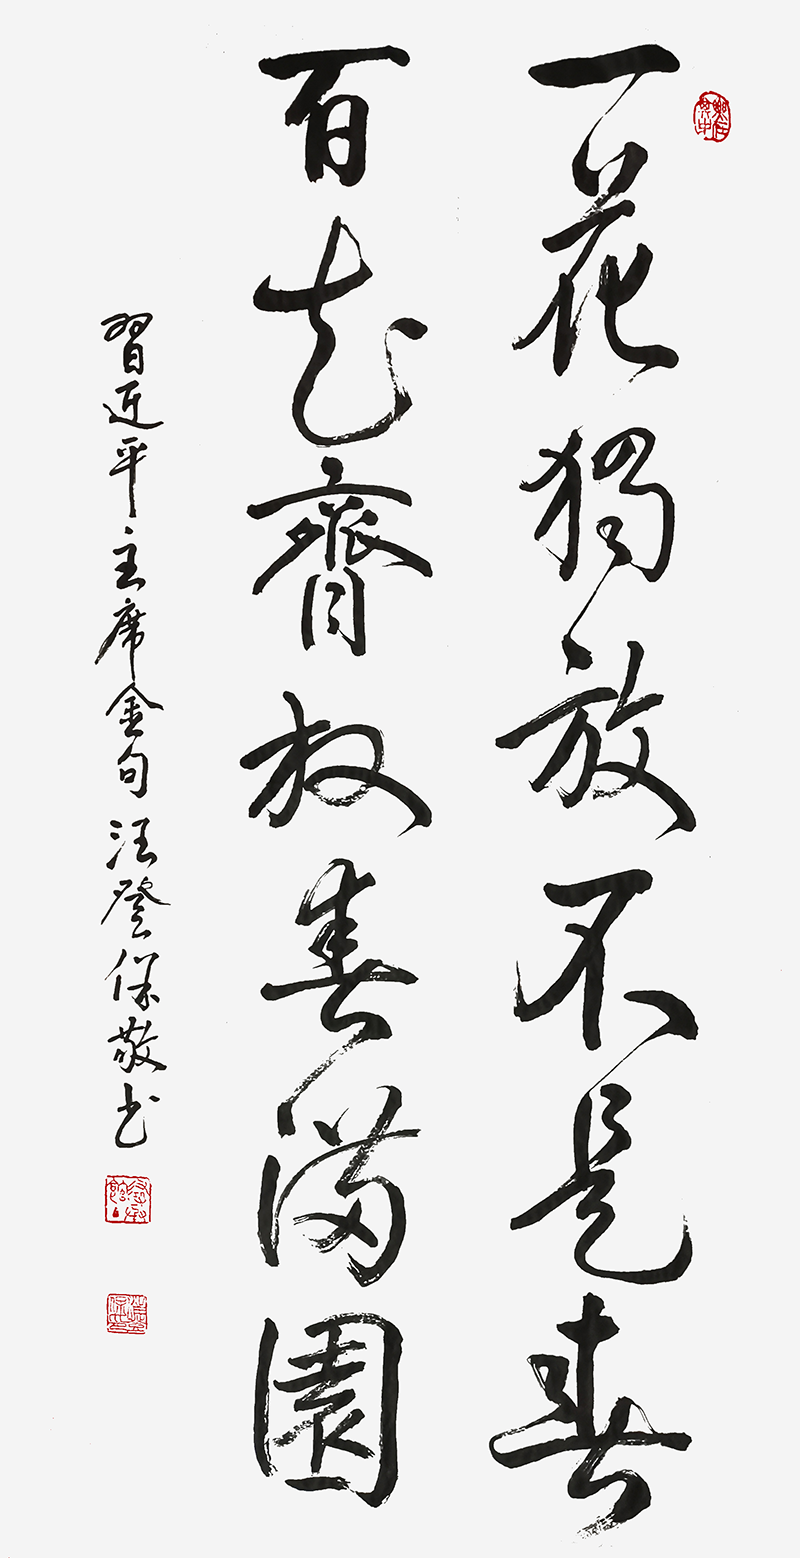 一花獨放不是春
百花齊放春滿園
習近平主席金句汪登保敬书